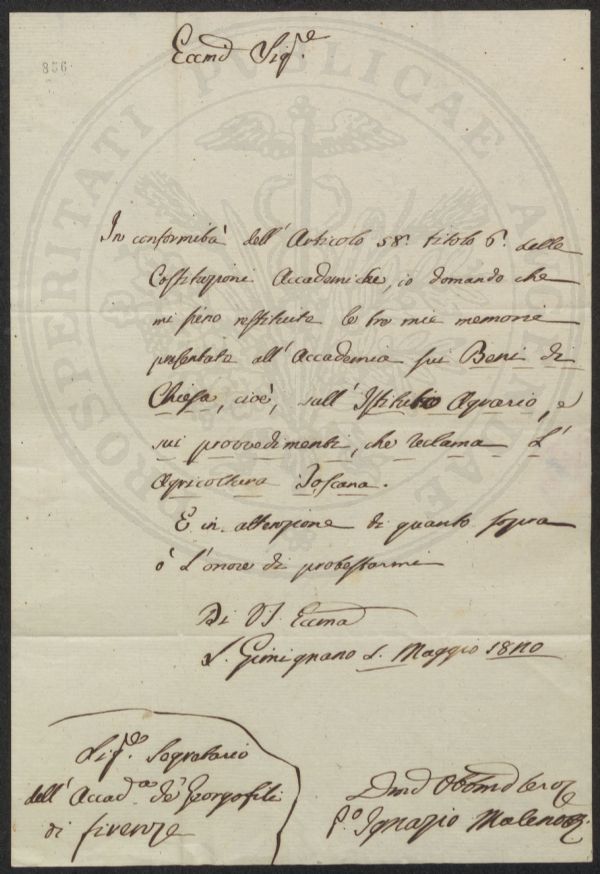 856.
PROSPERITATI PUBLICAE AUGENDAE
Eccmo Sig.e
In conformità dell' Articolo 58.° titolo 6.° delle
Costituzioni Accademiche, io domando che
mi sieno restituite le tre mie memorie
presentate all' Accademia sui Beni di
Chiesa, cioè, sull' Istituto Agrario, e
sui provvedimenti, che reclama l'
Agricoltura Toscana.
E in attenzione di quanto sopra
ò l'onore di protestarmi
Di VS. Eccma
S. Gimignano Maggio
Sig.e Segretario
dell' Accad.a de' Georgofili
di firenze
Dmo Obbmo
P.o Ignazio